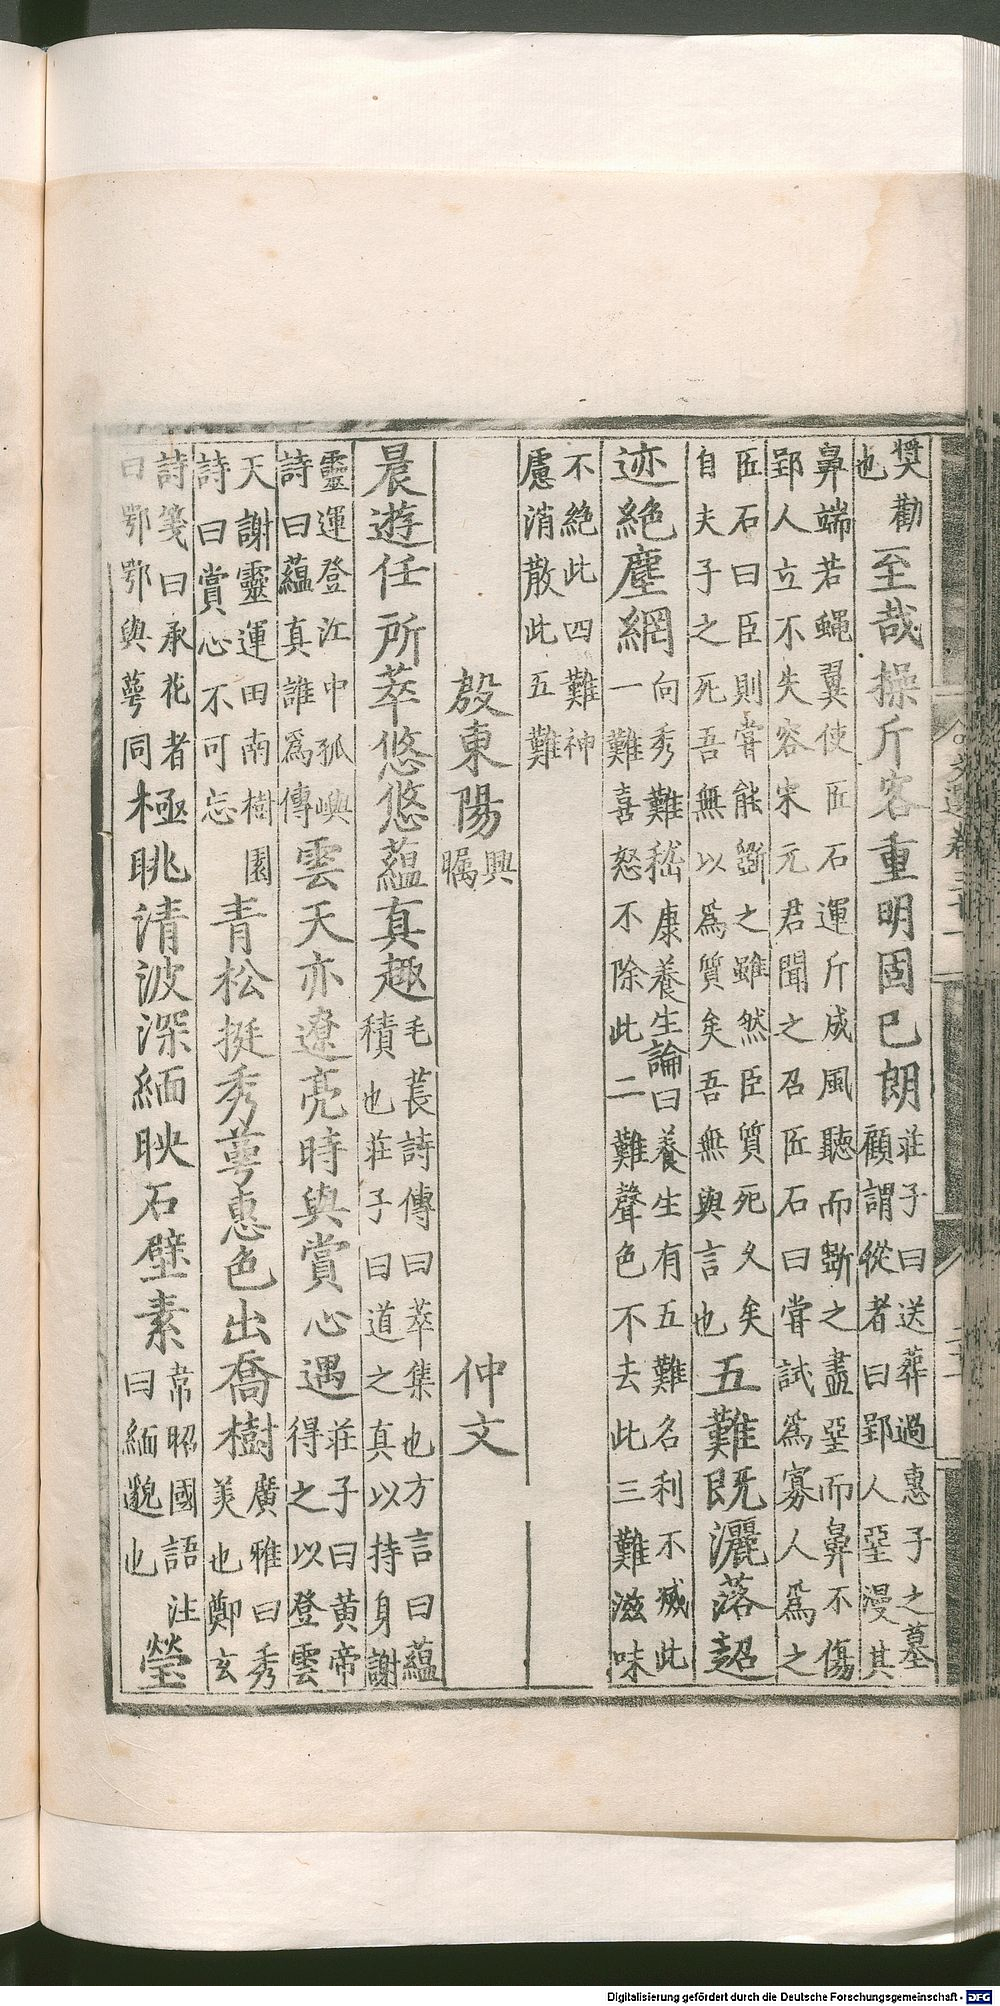 奬勸也至哉操斤客重明固已朗莊子曰送葬過惠子之墓顧謂從者曰郢人堊漫其
鼻端若蠅翼使匠石運斤成風聽而斲之盡堊而鼻不傷
郢人立不失容宋元君聞之召匠石曰嘗試爲寡人爲之
匠石曰臣則嘗能斵之雖然臣質死乆矣
自夫子之死吾無以爲質矣吾無與言也五難旣灑落超
迹絶塵網向秀難嵇康養生論曰養生有五難名利不滅此
一難喜怒不除此二難聲色不去此三難滋味
不絶此四難神
慮消散此五難
殷東陽興矚 仲文
晨遊任所萃悠悠蘊真趣毛萇詩傳曰萃集也方言曰蘊
積也莊子曰道之真以持身謝
靈運登江中孤嶼
詩曰蘊真誰爲傳雲天亦遼亮時與賞心遇莊子曰黃帝
得之以登雲
天謝靈運田南樹園
詩曰賞心不可忘青松挺秀萼惠色出喬樹廣雅曰秀
美也鄭玄
詩箋曰承花者
曰鄂鄂與萼同極眺清波深緬映石壁素韋昭國語注
曰緬邈也瑩
Digitalisierung gefördert durch die Deutsche Forschungsgemeinschaft - DFG